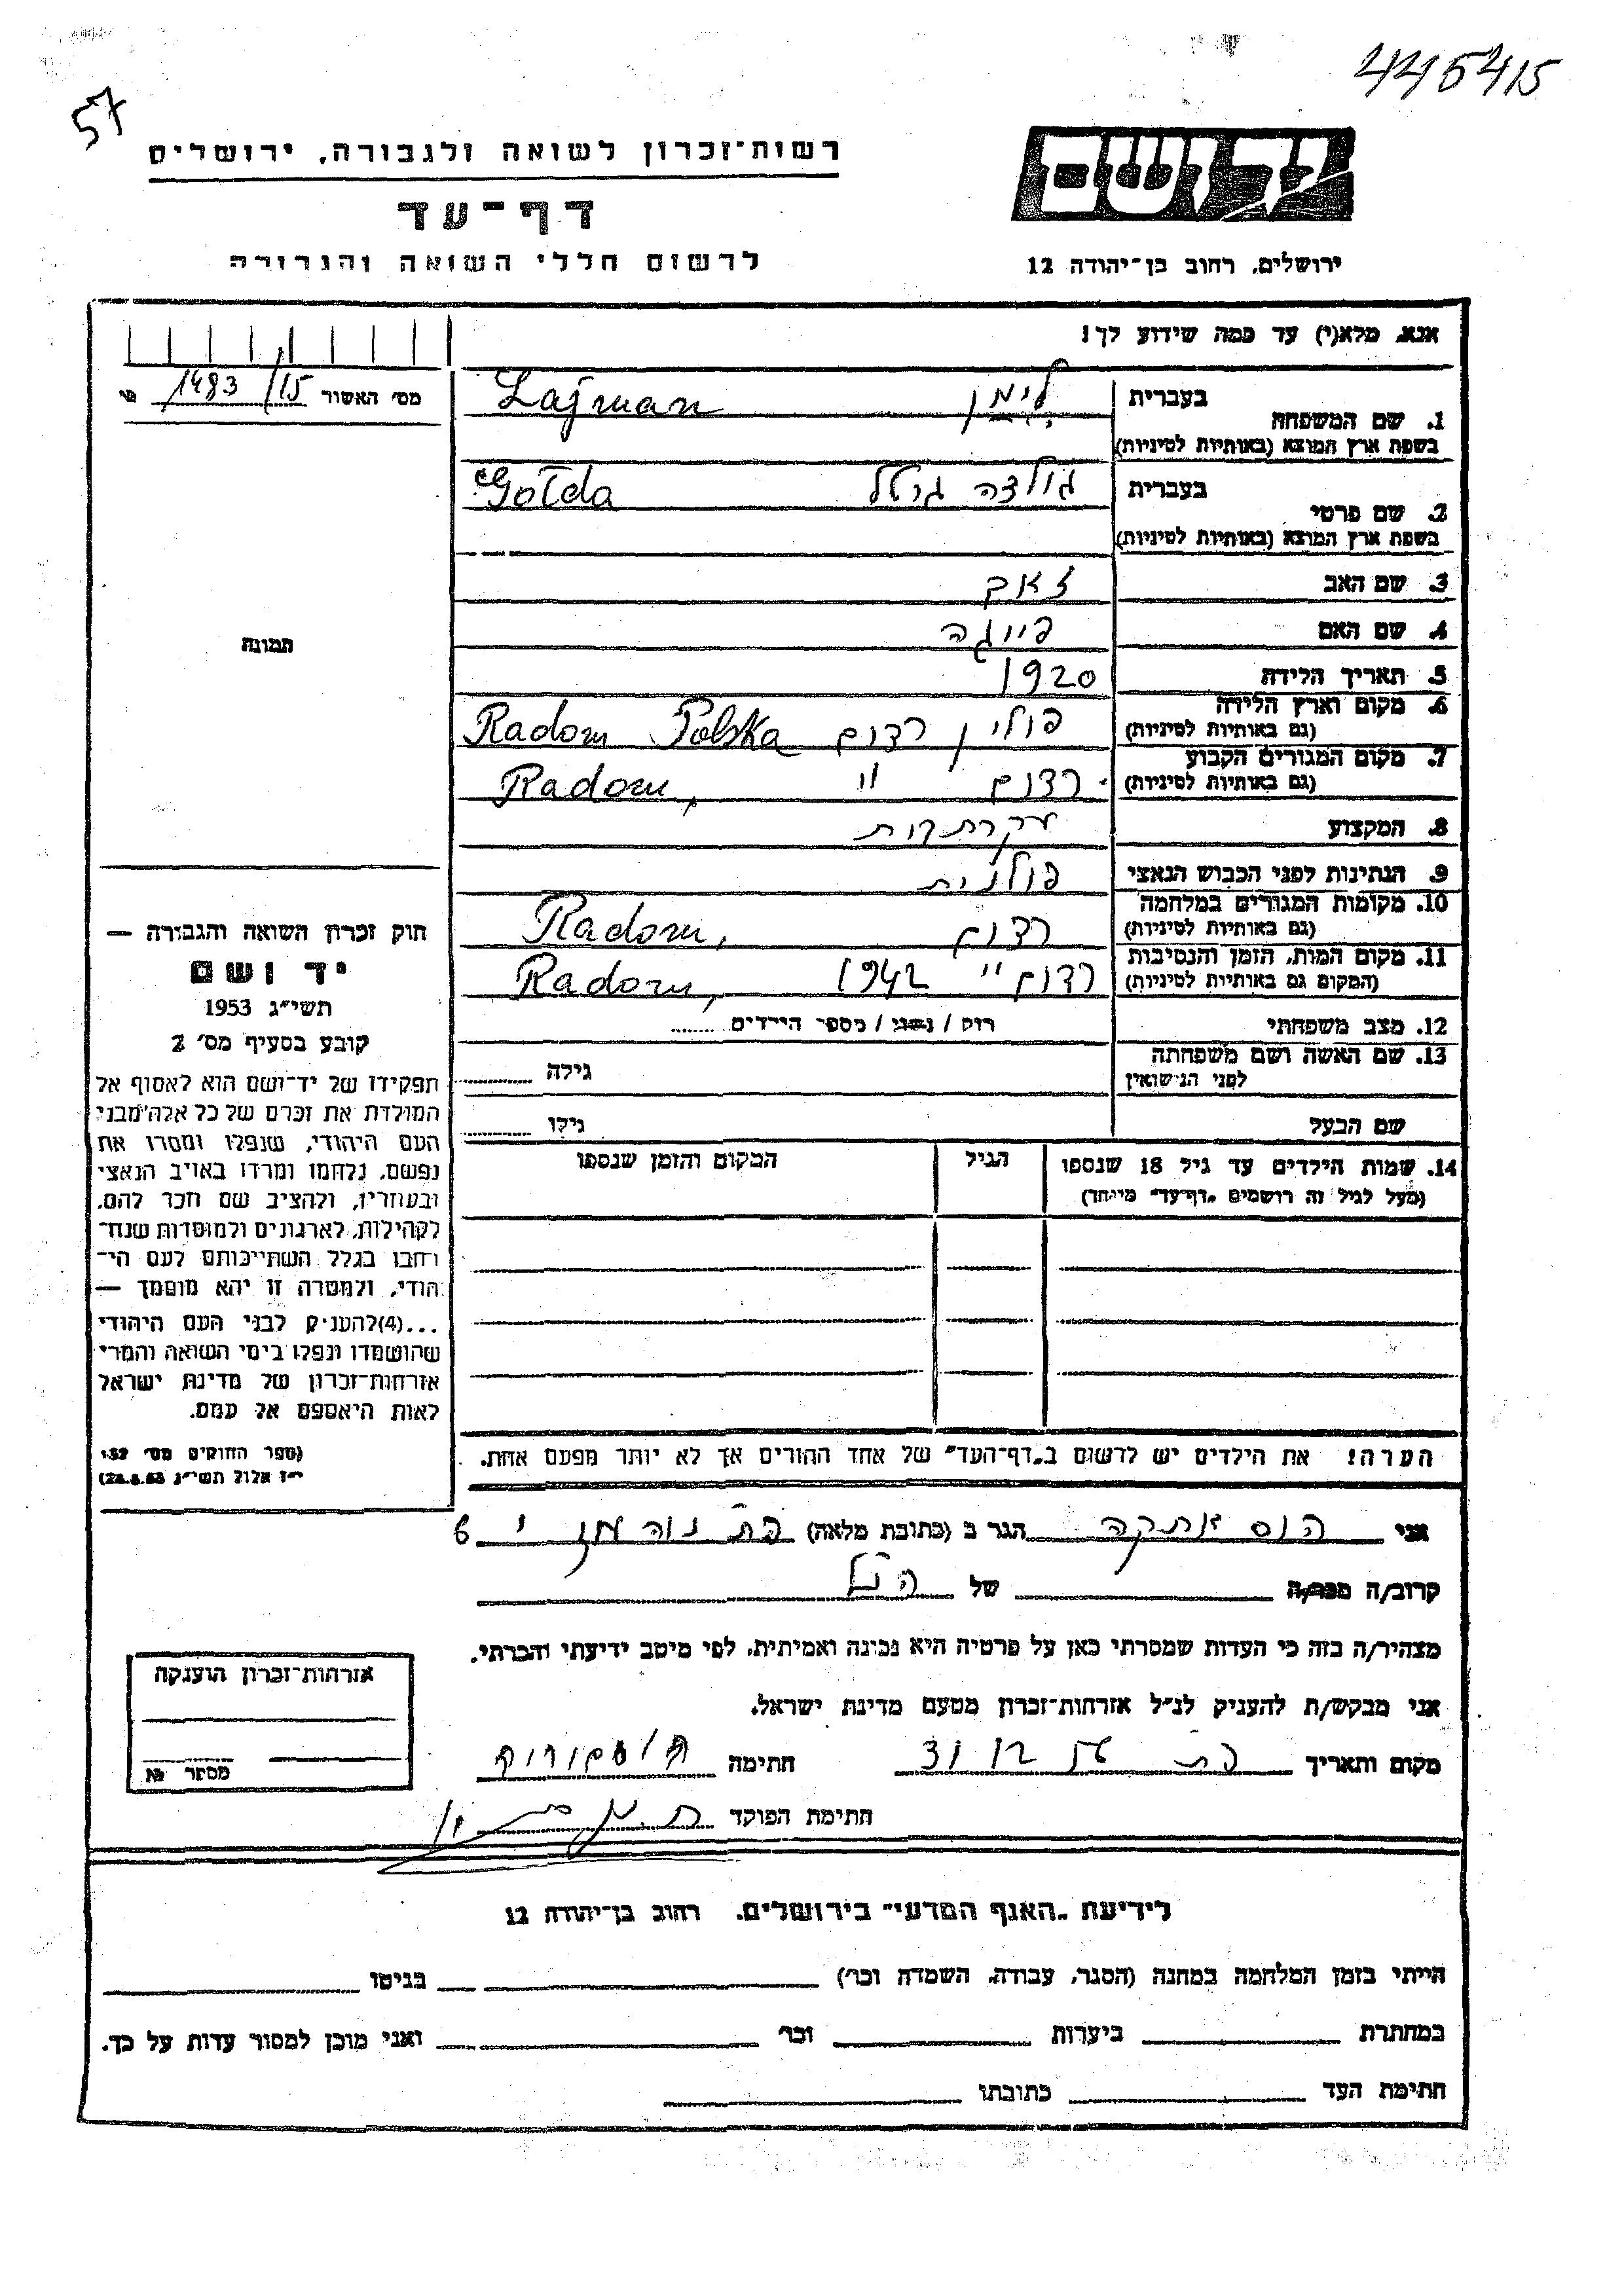 445415
57
יד ושם
רשות־זכרון לשואה ולגבורה, ירושלים
דף־עד
לרשום חללי השואה והגבורה
ירושלים, רחוב בן־יהודה 12
אנא, מלא(י) עד כמה שידוע לך!
מס׳ האשור 1483/15
1. שם המשפחה
בעברית לימן Lajman
בשפת ארץ המוצא (באותיות לטיניות)
2. שם פרטי
בעברית גולדה Gołda
בשפת ארץ המוצא (באותיות לטיניות)
3. שם האב זאב
4. שם האם פייגה
5. תאריך הלידה 1920
6. מקום וארץ הלידה
(גם באותיות לטיניות) פולין רדום Radom Polska
7. מקום המגורים הקבוע
(גם באותיות לטיניות) רדום " Radom,
8. המקצוע עקרת בית
9. הנתינות לפני הכבוש הנאצי פולנית
10. מקומות המגורים במלחמה
(גם באותיות לטיניות) רדום Radom,
11. מקום המות, הזמן והנסיבות
(המקום גם באותיות לטיניות) רדום " 1942 Radom,
12. מצב משפחתי רוק / נשוי / מספר הילדים
13. שם האשה ושם משפחתה
לפני הנישואין גילה
שם הבעל גילו
14. שמות הילדים עד גיל 18 שנספו הגיל המקום והזמן שנספו
(מעל לגיל זה רושמים „דף־עד״ מיוחד)
הערה! את הילדים יש לרשום ב„דף־העד״ של אחד ההורים אך לא יותר מפעם אחת.
תמונה
חוק זכרון השואה והגבורה —
יד ושם
תשי״ג 1953
קובע בסעיף מס׳ 2
תפקידו של יד־ושם הוא לאסוף אל
המולדת את זכרם של כל אלה מבני
העם היהודי, שנפלו ומסרו את
נפשם, נלחמו ומרדו באויב הנאצי
ובעוזריו, ולהציב שם וזכר להם,
לקהילות, לארגונים ולמוסדות שנח־
רחבו בגלל השתייכותם לעם הי־
הודי, ולמטרה זו יהא מוסמך —
...(4)להעניק לבני העם היהודי
שהושמדו ונפלו בימי השואה והמרי
אזרחות־זכרון של מדינת ישראל
לאות היאספם אל עמם.
(ספר החוקים מס׳ 132
י״ז אלול תשי״ג 28.8.53)
אני הגר ב (כתובת מלאה) 6
קרוב/ה מכר/ה של הנ״ל
מצהיר/ה בזה כי העדות שמסרתי כאן על פרטיה היא נכונה ואמיתית, לפי מיטב ידיעתי והכרתי.
אני מבקש/ת להעניק לנ״ל אזרחות־זכרון מטעם מדינת ישראל.
מקום ותאריך חתימה
חתימת הפוקד
אזרחות־זכרון הוענקה
מספר
לידיעת „האגף המדעי״ בירושלים, רחוב בן־יהודה 12
הייתי בזמן המלחמה במחנה (הסגר, עבודה, השמדה וכו׳) בגיטו
במחתרת ביערות וכו׳ ואני מוכן למסור עדות על כך.
חתימת העד כתובתו